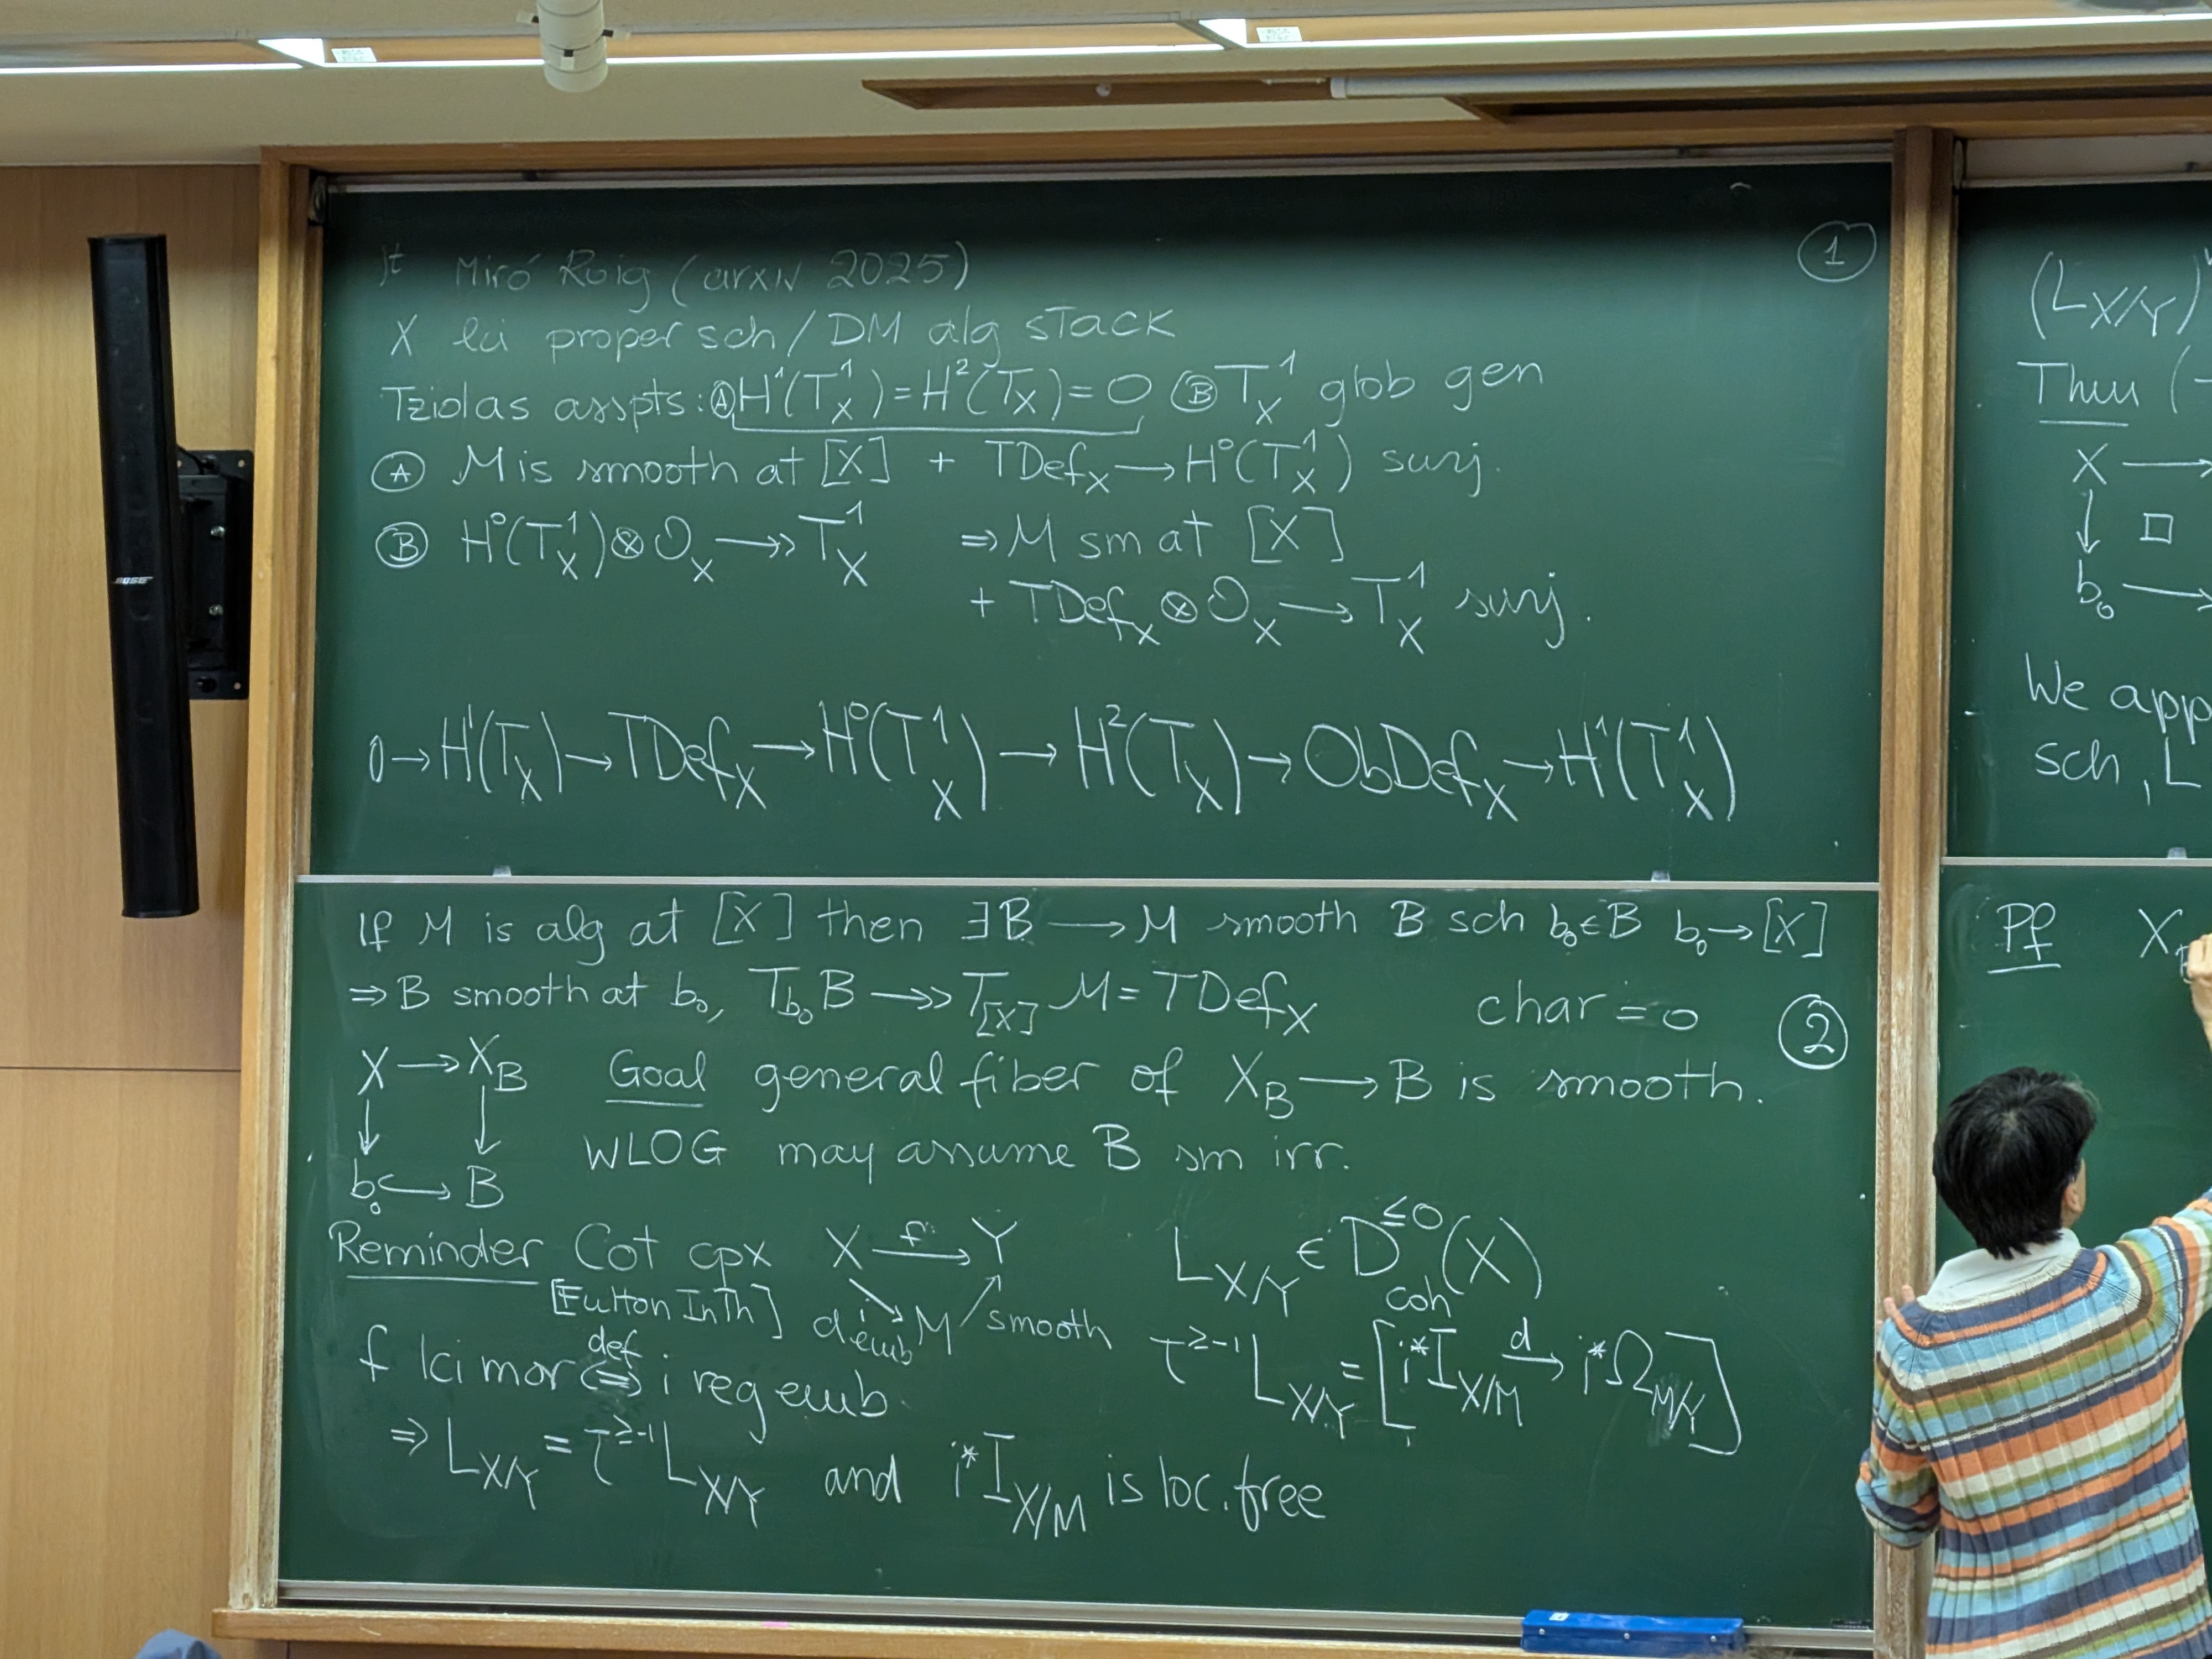 jt Miró Roig (arxiv 2025)
①
X lci proper sch / DM alg stack
Tziolas asspts: Ⓐ H¹(T¹_X) = H²(T_X) = 0 Ⓑ T¹_X glob gen
Ⓐ M is smooth at [X] + TDef_X → H⁰(T¹_X) surj.
Ⓑ H⁰(T¹_X) ⊗ O_X ↠ T¹_X ⇒ M sm at [X]
+ TDef_X ⊗ O_X → T¹_X surj.
0 → H¹(T_X) → TDef_X → H⁰(T¹_X) → H²(T_X) → ObDef_X → H¹(T¹_X)
If M is alg at [X] then ∃ B → M smooth B sch b₀ ∈ B b₀ → [X]
⇒ B smooth at b₀, T_{b₀}B ↠ T_{[X]}M = TDef_X char = 0
②
X → X_B Goal general fiber of X_B → B is smooth.
↓ ↓
b₀ ↪ B WLOG may assume B sm irr.
Reminder Cot cpx X →^f Y L_{X/Y} ∈ D^{≤0}_{coh}(X)
[Fulton InTh] cl emb i ↘ M ↗ smooth τ^{≥-1} L_{X/Y} = [i*I_{X/M} →^d i*Ω_{M/Y}]
f lci mor ⇔^{def} i reg emb.
⇒ L_{X/Y} = τ^{≥-1} L_{X/Y} and i*I_{X/M} is loc. free
(L_{X/Y})
Thm (
X →
↓ □
b₀ →
We app
sch, L
Pf X
BOSE